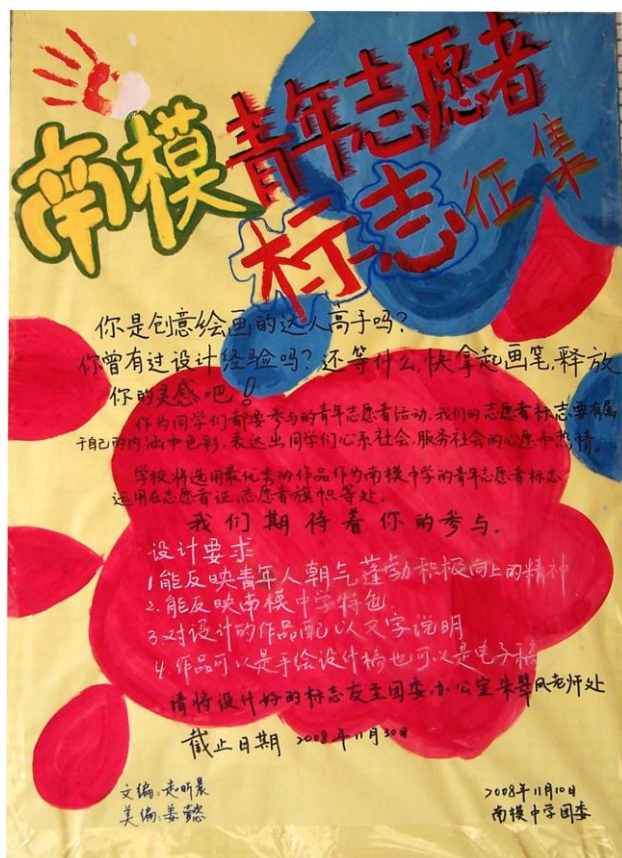 南模青年志愿者
标志征集
你是创意绘画的达人高手吗?
你曾有过设计经验吗?还等什么,快拿起画笔,释放
你的灵感吧!
作为同学们都要参与的青年志愿者活动,我们的志愿者标志要有属
于自己的内涵和色彩,表达出同学们心系社会、服务社会的心愿和热情。
学校将选用最优秀的作品作为南模中学的青年志愿者标志
运用在志愿者证、志愿者旗帜等处。
我们期待着你的参与.
设计要求
1.能反映青年人朝气蓬勃积极向上的精神
2.能反映南模中学特色
3.对设计的作品配以文字说明
4.作品可以是手绘设计稿也可以是电子稿
请将设计好的标志交至团委办公室朱翠凤老师处
截止日期 2008年11月30日
文编:赵昕晨
美编:姜懿
2008年11月10日
南模中学团委